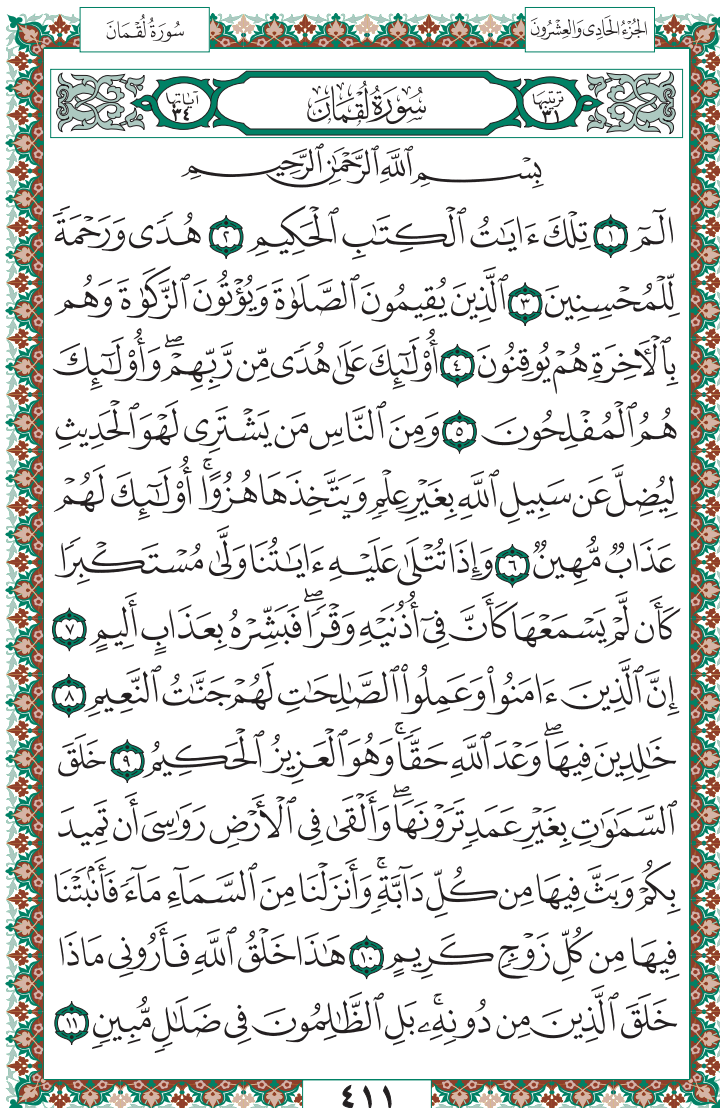 الجُزْءُ الحَادِى وَالعِشْرُونَ
سُورَةُ لُقْمَانَ
تَرتيبُهَا ٣١
سُورَةُ لُقْمَانَ
آيَاتُهَا ٣٤
بِسْمِ ٱللَّهِ ٱلرَّحْمَٰنِ ٱلرَّحِيمِ
الٓمٓ ١ تِلْكَ ءَايَٰتُ ٱلْكِتَٰبِ ٱلْحَكِيمِ ٢ هُدًى وَرَحْمَةً
لِّلْمُحْسِنِينَ ٣ ٱلَّذِينَ يُقِيمُونَ ٱلصَّلَوٰةَ وَيُؤْتُونَ ٱلزَّكَوٰةَ وَهُم
بِٱلْءَاخِرَةِ هُمْ يُوقِنُونَ ٤ أُو۟لَٰٓئِكَ عَلَىٰ هُدًى مِّن رَّبِّهِمْ ۖ وَأُو۟لَٰٓئِكَ
هُمُ ٱلْمُفْلِحُونَ ٥ وَمِنَ ٱلنَّاسِ مَن يَشْتَرِى لَهْوَ ٱلْحَدِيثِ
لِيُضِلَّ عَن سَبِيلِ ٱللَّهِ بِغَيْرِ عِلْمٍ وَيَتَّخِذَهَا هُزُوًا ۚ أُو۟لَٰٓئِكَ لَهُمْ
عَذَابٌ مُّهِينٌ ٦ وَإِذَا تُتْلَىٰ عَلَيْهِ ءَايَٰتُنَا وَلَّىٰ مُسْتَكْبِرًا
كَأَن لَّمْ يَسْمَعْهَا كَأَنَّ فِىٓ أُذُنَيْهِ وَقْرًا ۖ فَبَشِّرْهُ بِعَذَابٍ أَلِيمٍ ٧
إِنَّ ٱلَّذِينَ ءَامَنُوا۟ وَعَمِلُوا۟ ٱلصَّٰلِحَٰتِ لَهُمْ جَنَّٰتُ ٱلنَّعِيمِ ٨
خَٰلِدِينَ فِيهَا ۖ وَعْدَ ٱللَّهِ حَقًّا ۚ وَهُوَ ٱلْعَزِيزُ ٱلْحَكِيمُ ٩ خَلَقَ
ٱلسَّمَٰوَٰتِ بِغَيْرِ عَمَدٍ تَرَوْنَهَا ۖ وَأَلْقَىٰ فِى ٱلْأَرْضِ رَوَٰسِىَ أَن تَمِيدَ
بِكُمْ وَبَثَّ فِيهَا مِن كُلِّ دَآبَّةٍ ۚ وَأَنزَلْنَا مِنَ ٱلسَّمَآءِ مَآءً فَأَنۢبَتْنَا
فِيهَا مِن كُلِّ زَوْجٍ كَرِيمٍ ١٠ هَٰذَا خَلْقُ ٱللَّهِ فَأَرُونِى مَاذَا
خَلَقَ ٱلَّذِينَ مِن دُونِهِۦ ۚ بَلِ ٱلظَّٰلِمُونَ فِى ضَلَٰلٍ مُّبِينٍ ١١
٤١١